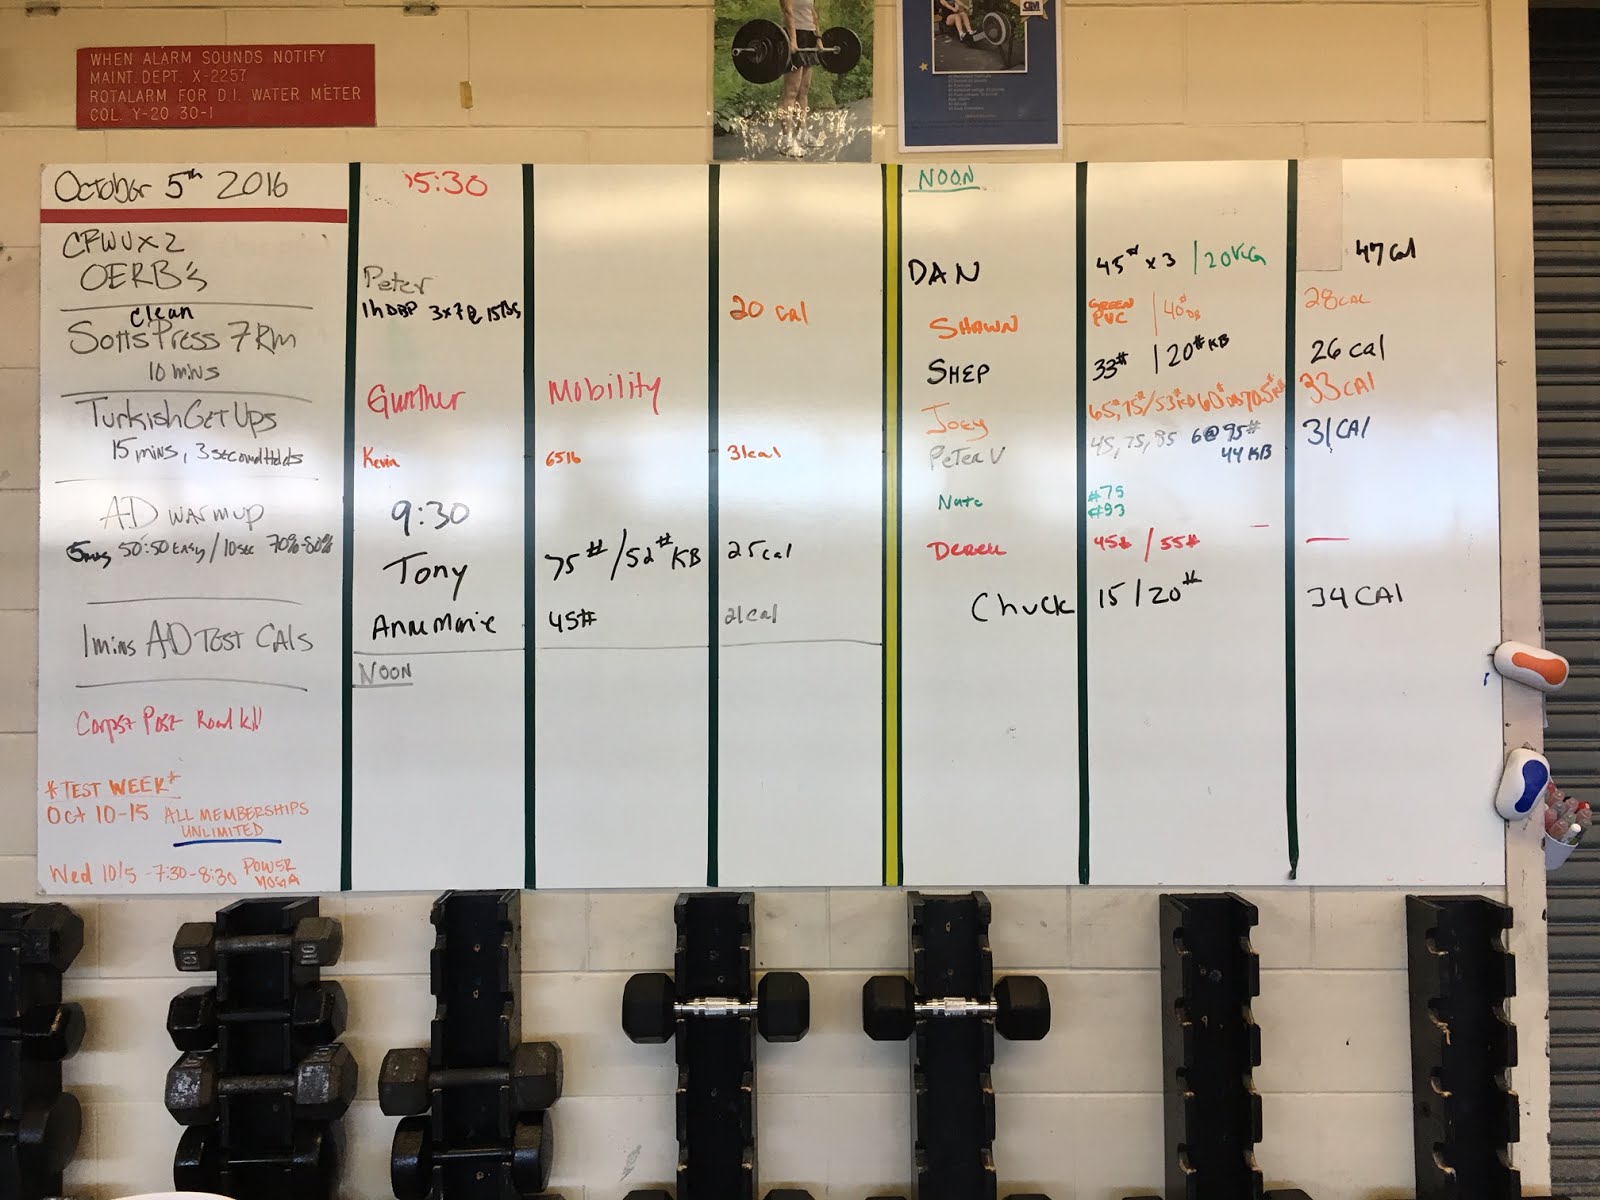 WHEN ALARM SOUNDS NOTIFY
MAINT. DEPT. X-2257
ROTALARM FOR D.I. WATER METER
COL. Y-20 30-1
October 5th 2016
CFWU x 2
OERB's
clean
Sotts Press 7 Rm
10 mins
Turkish Get Ups
15 mins, 3 second Holds
AD warmup
5mins 50:50 Easy / 10 sec 70%-80%
1 mins AD TEST CAls
Corpst Post Road kill
*TEST WEEK*
Oct 10-15 ALL MEMBERSHIPS
UNLIMITED
Wed 10/5 -7:30-8:30 POWER
YOGA
5:30
Peter
1h DBP 3x7@ 15lbs 20 Cal
Gunther Mobility
Kevin 65lb 31cal
9:30
Tony 75# / 52# KB 25 cal
Anne Marie 45# 21cal
NOON
NOON
DAN 45# x 3 / 20KG 47 Cal
SHAWN GREEN PVC / 40# DB 28 CAL
SHEP 33# / 20# KB 26 cal
Joey 65#, 75# / 53# KB 60# DB 70.5# KB 33 CAL
Peter V 45, 75, 85 6@95# 31 CAl
44 KB
Nate #75
#93
Derek 45# / 55# —
Chuck 15 / 20# 34 CAl